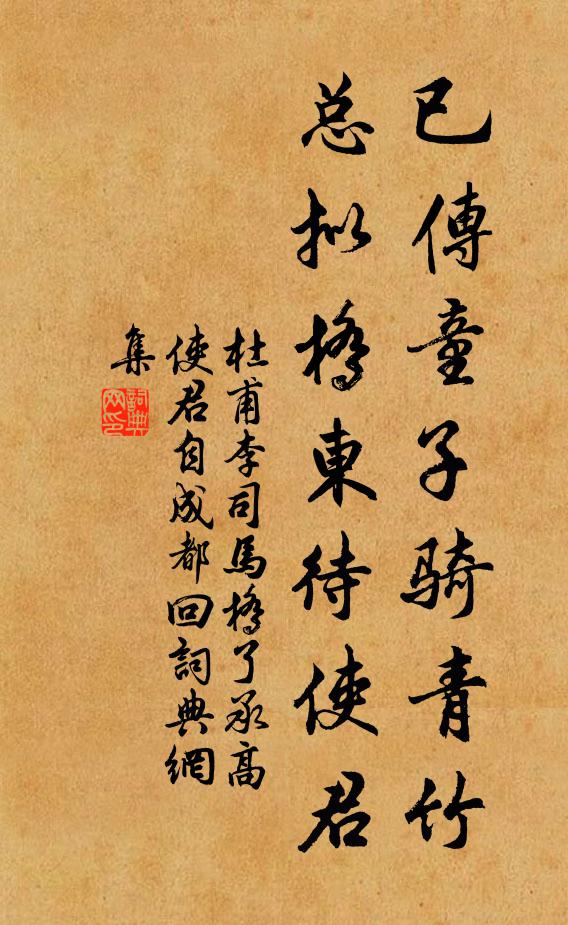 已傳童子騎青竹
总拟橋東待使君
杜甫李司馬橋了承高
使君自成都回詞典網
集
詞典
网印